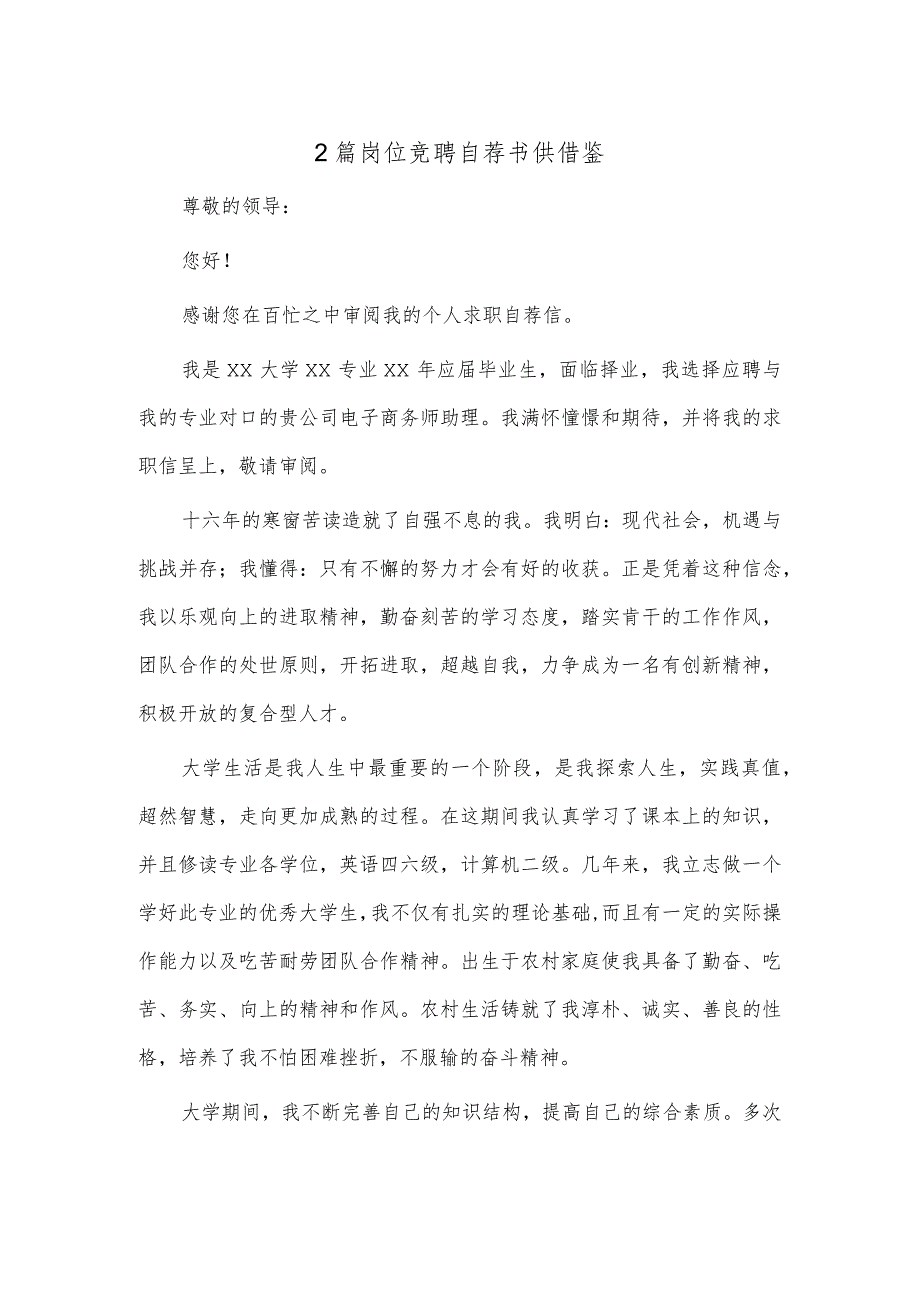 2篇岗位竞聘自荐书供借鉴
尊敬的领导：
您好！
感谢您在百忙之中审阅我的个人求职自荐信。
我是XX大学XX专业XX年应届毕业生，面临择业，我选择应聘与
我的专业对口的贵公司电子商务师助理。我满怀憧憬和期待，并将我的求
职信呈上，敬请审阅。
十六年的寒窗苦读造就了自强不息的我。我明白：现代社会，机遇与
挑战并存；我懂得：只有不懈的努力才会有好的收获。正是凭着这种信念，
我以乐观向上的进取精神，勤奋刻苦的学习态度，踏实肯干的工作作风，
团队合作的处世原则，开拓进取，超越自我，力争成为一名有创新精神，
积极开放的复合型人才。
大学生活是我人生中最重要的一个阶段，是我探索人生，实践真值，
超然智慧，走向更加成熟的过程。在这期间我认真学习了课本上的知识，
并且修读专业各学位，英语四六级，计算机二级。几年来，我立志做一个
学好此专业的优秀大学生,我不仅有扎实的理论基础,而且有一定的实际操
作能力以及吃苦耐劳团队合作精神。出生于农村家庭使我具备了勤奋、吃
苦、务实、向上的精神和作风。农村生活铸就了我淳朴、诚实、善良的性
格，培养了我不怕困难挫折，不服输的奋斗精神。
大学期间，我不断完善自己的知识结构，提高自己的综合素质。多次